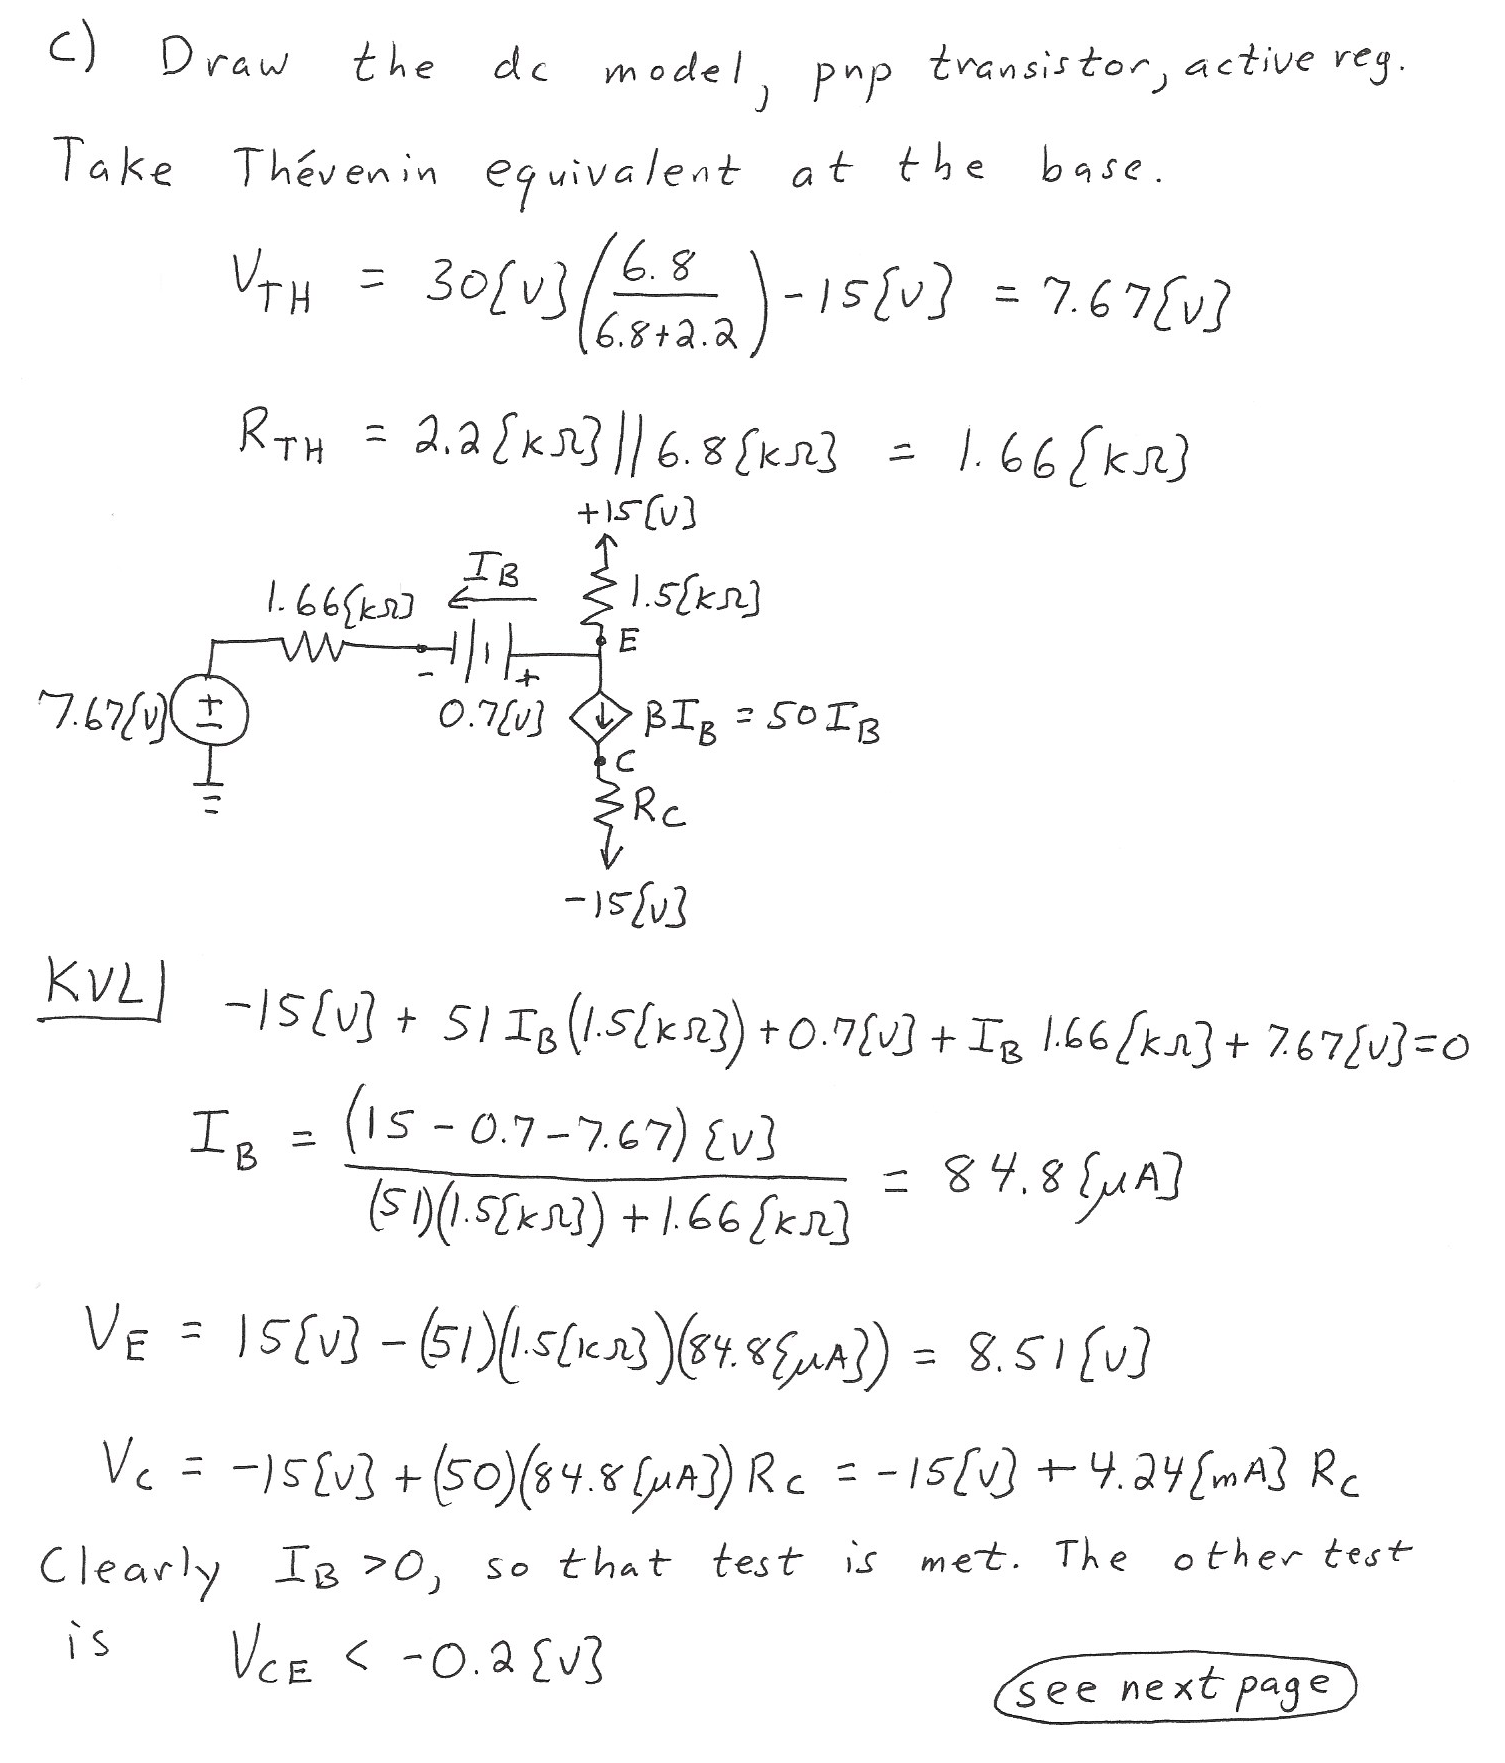 c) Draw the dc model, pnp transistor, active reg.
Take Thévenin equivalent at the base.
V_TH = 30[V] (6.8 / (6.8+2.2)) - 15[V] = 7.67[V]
R_TH = 2.2[kΩ] || 6.8[kΩ] = 1.66[kΩ]
+15[V]
I_B
1.66[kΩ]
1.5[kΩ]
E
- +
7.67[V]
+ -
0.7[V]
βI_B = 50 I_B
C
R_C
-15[V]
KVL| -15[V] + 51 I_B (1.5[kΩ]) + 0.7[V] + I_B 1.66[kΩ] + 7.67[V] = 0
I_B = (15 - 0.7 - 7.67)[V] / ((51)(1.5[kΩ]) + 1.66[kΩ]) = 84.8[μA]
V_E = 15[V] - (51)(1.5[kΩ])(84.8[μA]) = 8.51[V]
V_C = -15[V] + (50)(84.8[μA]) R_C = -15[V] + 4.24[mA] R_C
Clearly I_B > 0, so that test is met. The other test
is V_CE < -0.2[V]
see next page